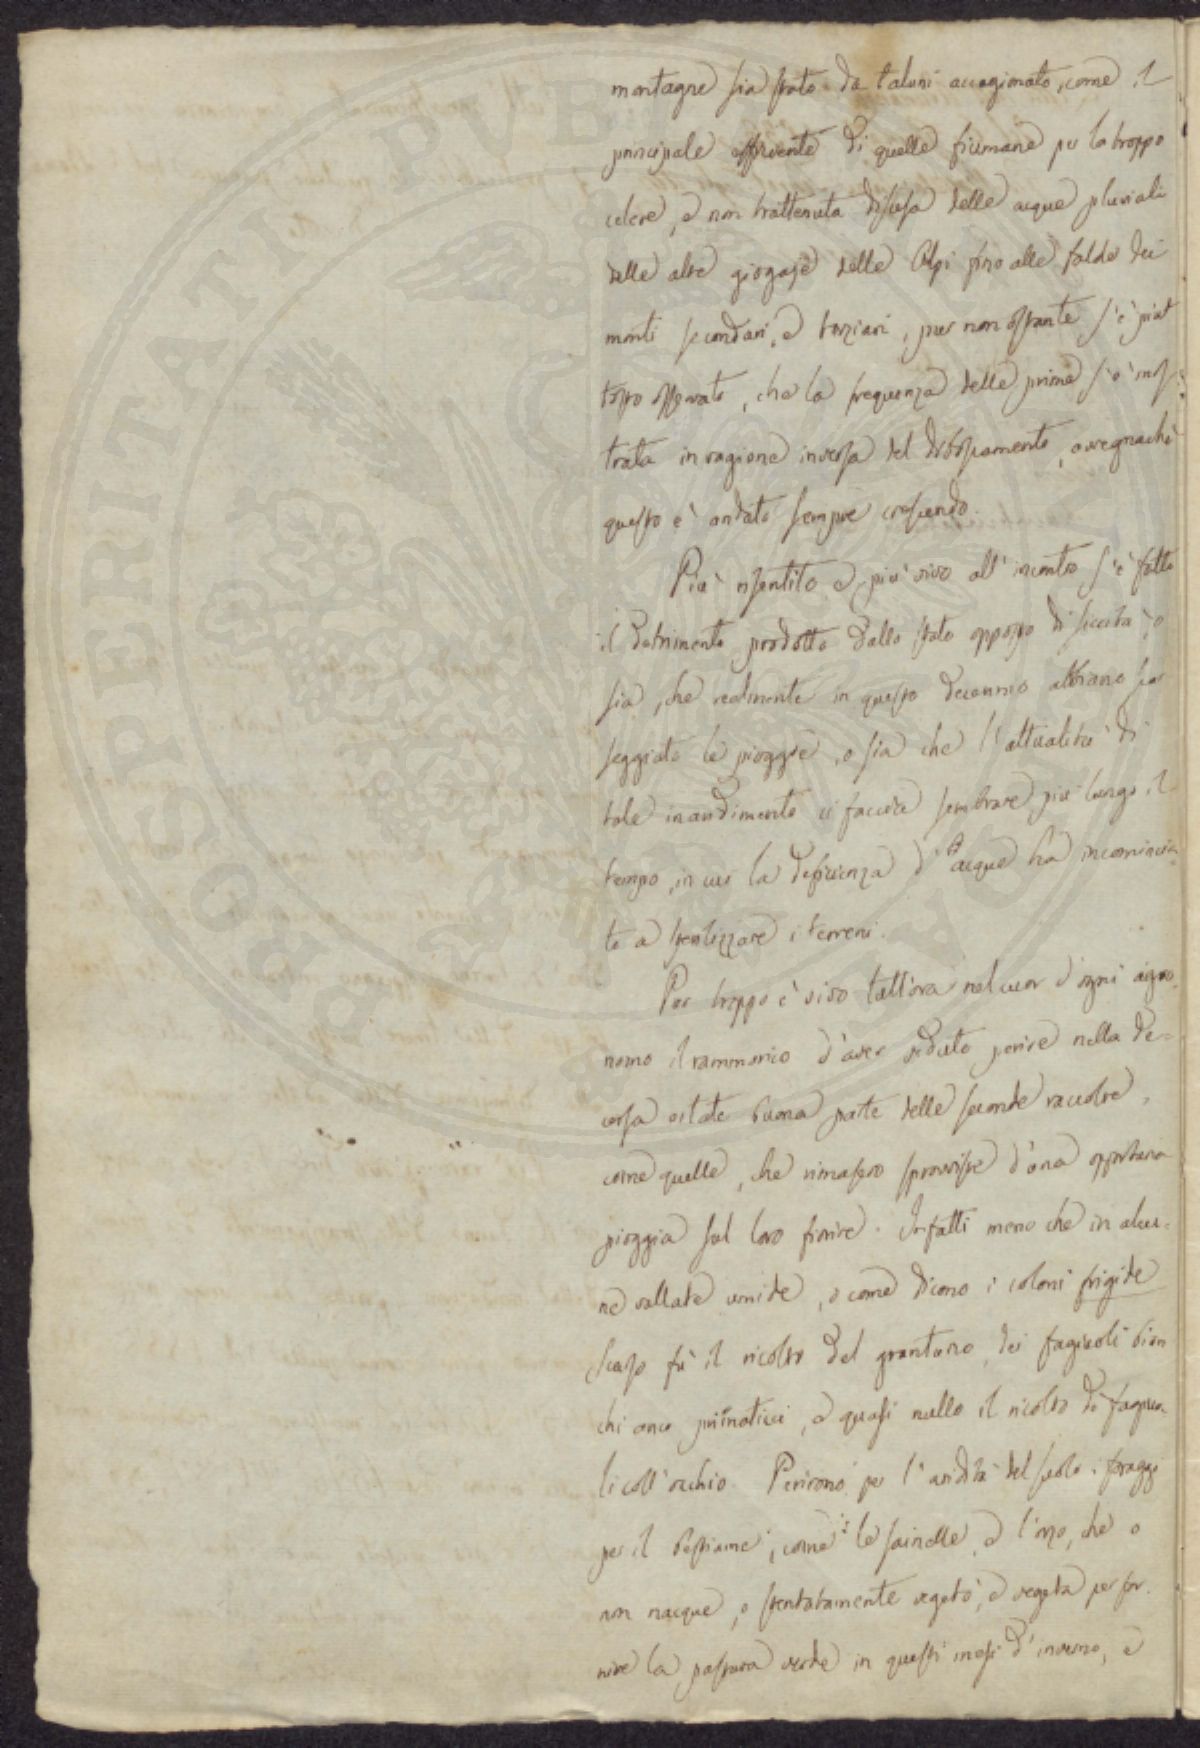 montagne sia stato da taluni accagionato, come il
principale affluente di quelle fiumane per la troppo
celere, e non trattenuta discesa delle acque pluviali
dalle alte giogaje delle Alpi fino alle falde dei
monti secondari, e terziari, pur non ostante s'è piut
tosto osservato, che la frequenza delle prime s'è mos-
trata in ragione inversa del disboscamento, avvegnachè
questo è andato sempre crescendo.
Più risentito e più vivo all'incontro s'è fatto
il detrimento prodotto dallo stato opposto di siccità, o
sia, che realmente in questo decennio abbiano scar
seggiato le pioggie, o sia che l'attualità di
tale inaridimento ci faccia sembrare più lungo il
tempo, in cui la deficienza d'acque ha incomincia-
to a sterilizzare i terreni.
Pur troppo è vivo tutt'ora nel cuor d'ogni agro-
nomo il rammarico d'aver veduto perire nella de-
corsa estate buona parte delle seconde raccolte,
come quelle, che rimasero sprovviste d'una opportuna
pioggia sul loro fiorire. Infatti meno che in alcu-
ne vallate umide, o come dicono i coloni frigide
scarso fù il ricolto del granturco, dei fagiuoli bian
chi anco primaticci, e quasi nullo il ricolto di fagiuo-
li coll'occhio. Perirono per l'aridità del suolo i foraggi
per il bestiame, come le sainelle, e l'orzo, che o
non nacque, o stentatamente vegetò, e vegeta per for-
nire la pastura verde in questi mesi d'inverno, e
PROSPERITATI PVBL